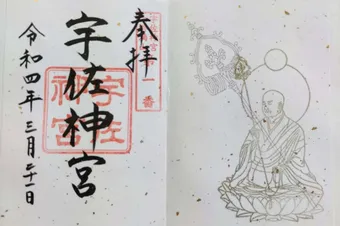 奉拝
一番
宇佐神宮
宇佐
神宮
令和四年三月二十一日